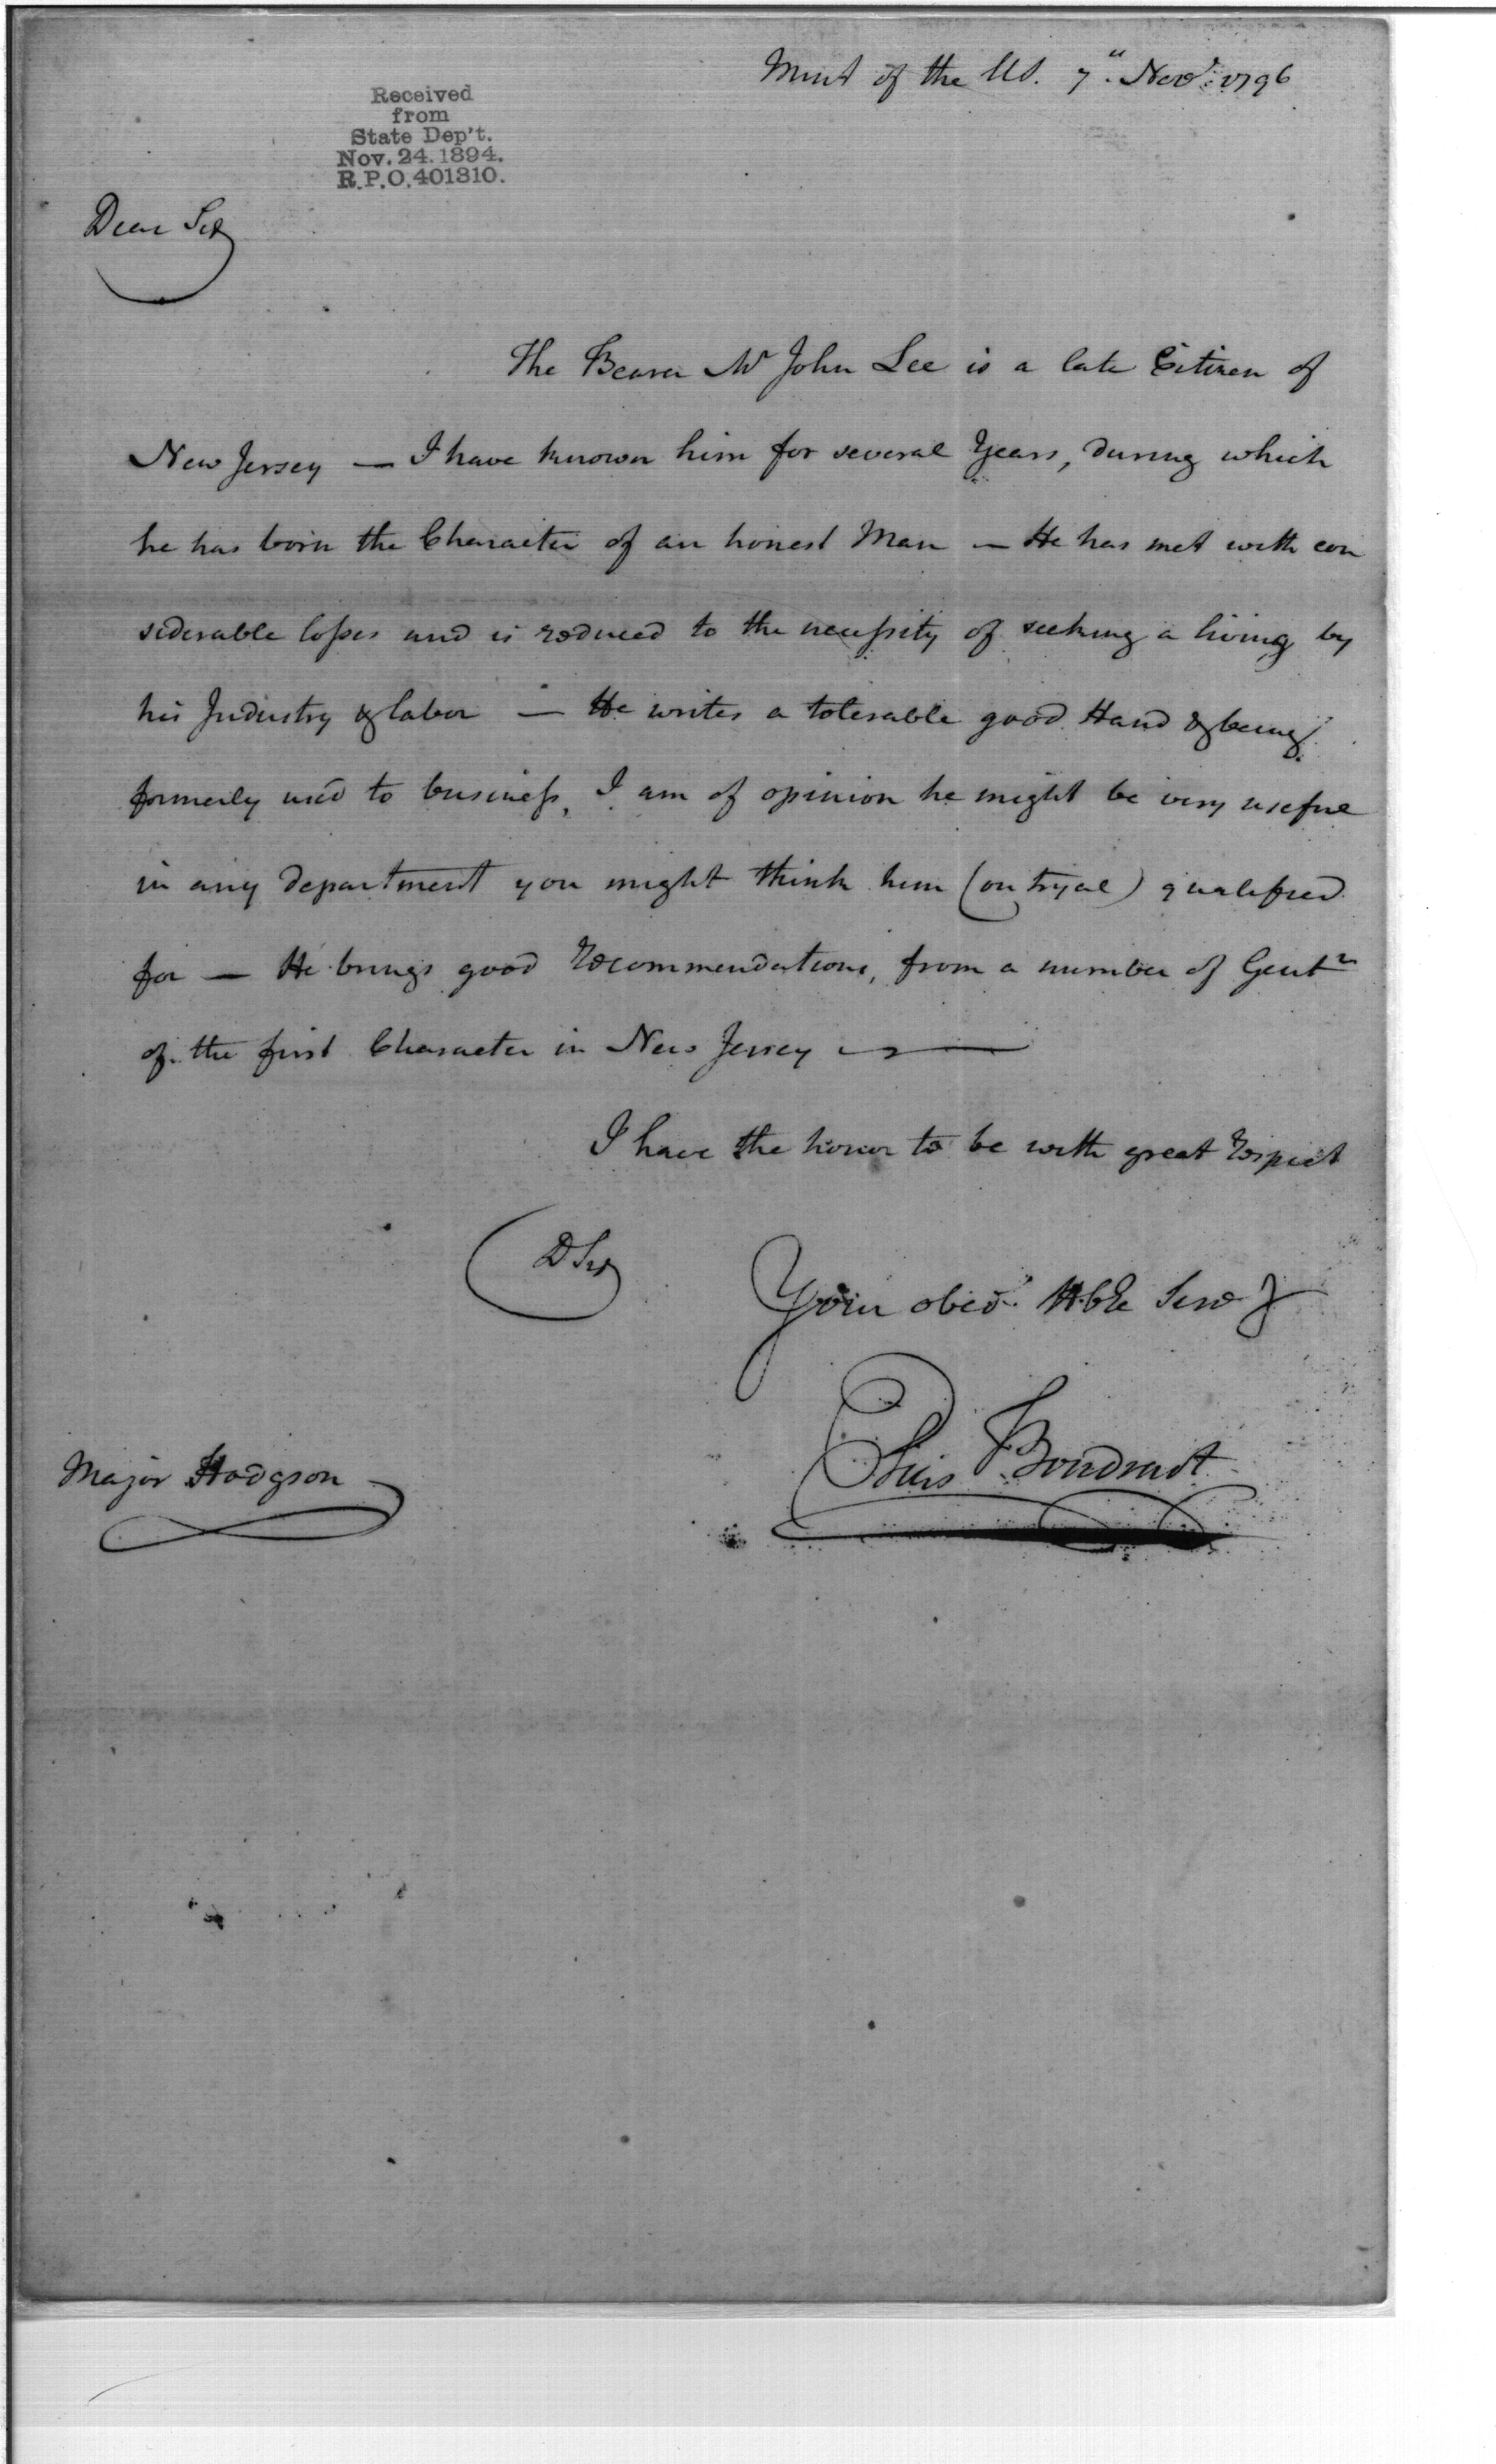 Mint of the US. 7th Novr. 1796
Received
from
State Dep't.
Nov. 24. 1894.
R.P.O. 401310.
Dear Sir
The Bearer Mr John Lee is a late Citizen of
New Jersey — I have known him for several Years, during which
he has born the Character of an honest Man — He has met with con
siderable losses and is reduced to the necessity of seeking a living by
his Industry & labor — He writes a tolerable good Hand & being
formerly used to business, I am of opinion he might be very useful
in any department you might think him (on tryal) qualified
for — He brings good Recommendations, from a number of Gentn
of the first Character in New Jersey —
I have the honor to be with great Respect
D Sir
Your obedt. Hble Servt
Elias Boudinot
Major Hodgson